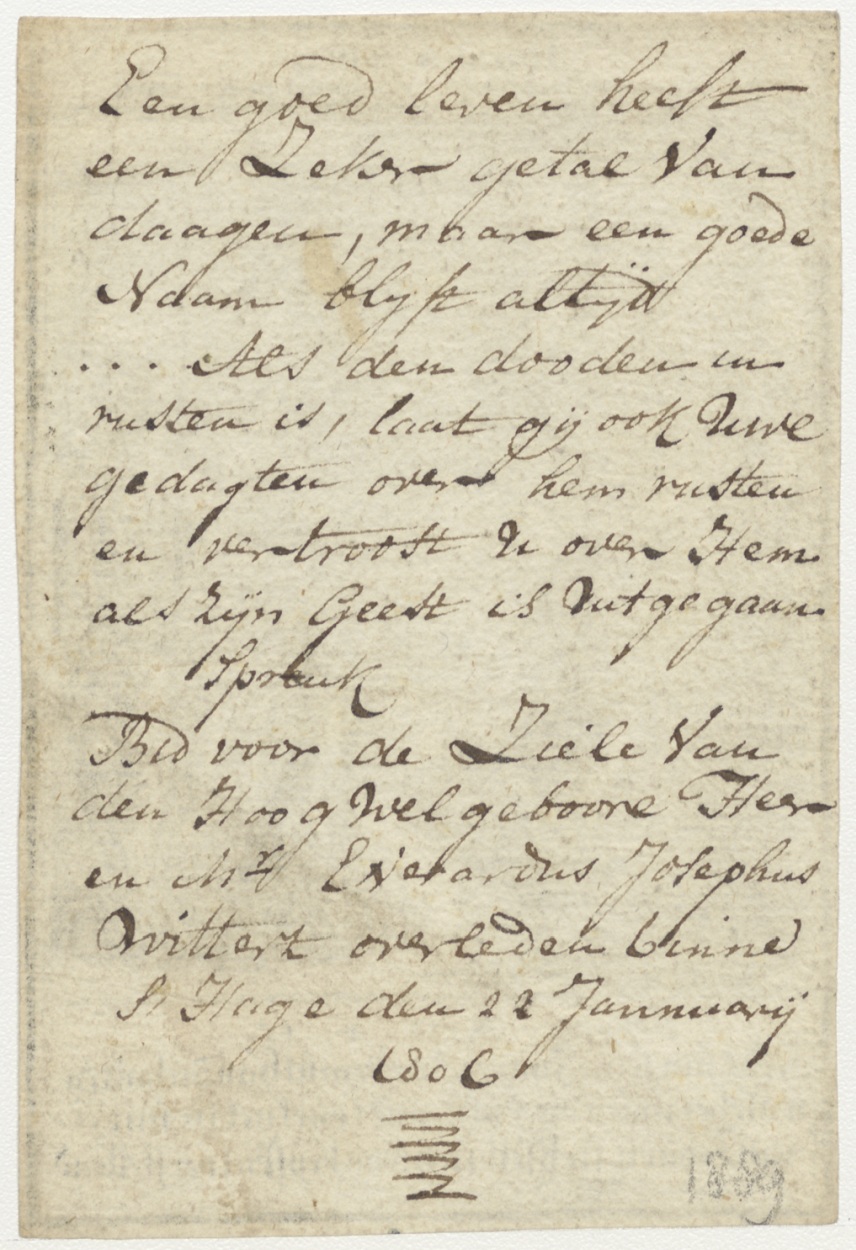 Een goed leven heeft
een Zeker getal Van
daagen, maar een goede
Naam blyft altijd
... Als den dooden in
rusten is, laat gij ook Uwe
gedagten over hem rusten
en vertroost U over Hem
als zijn Geest is Uitgegaan
Spreuk
Bid voor de Ziele Van
den Hoog Wel geboore Heer
en Mr Everardus Josephus
Wittert overleden binne
S, Hage den 22 Jannuarij
1806
1889